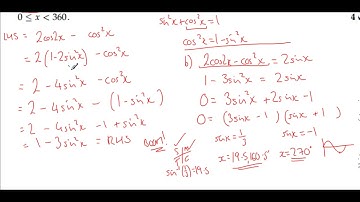 0 ≤ x < 360.
LHS = 2cos2x - cos²x
= 2(1-2sin²x) - cos²x
= 2 - 4sin²x - cos²x
= 2 - 4sin²x - (1-sin²x)
= 2 - 4sin²x - 1 + sin²x
= 1 - 3sin²x = RHS Boom!
sin²x + cos²x = 1
cos²x = 1 - sin²x
b) 2cos2x - cos²x = 2sinx
1 - 3sin²x = 2sinx
0 = 3sin²x + 2sinx - 1
0 = (3sinx - 1)(sinx + 1)
sinx = 1/3 sinx = -1
x = 19.5, 160.5° x = 270°
S A
T C
sin⁻¹(1/3) = 19.5
4